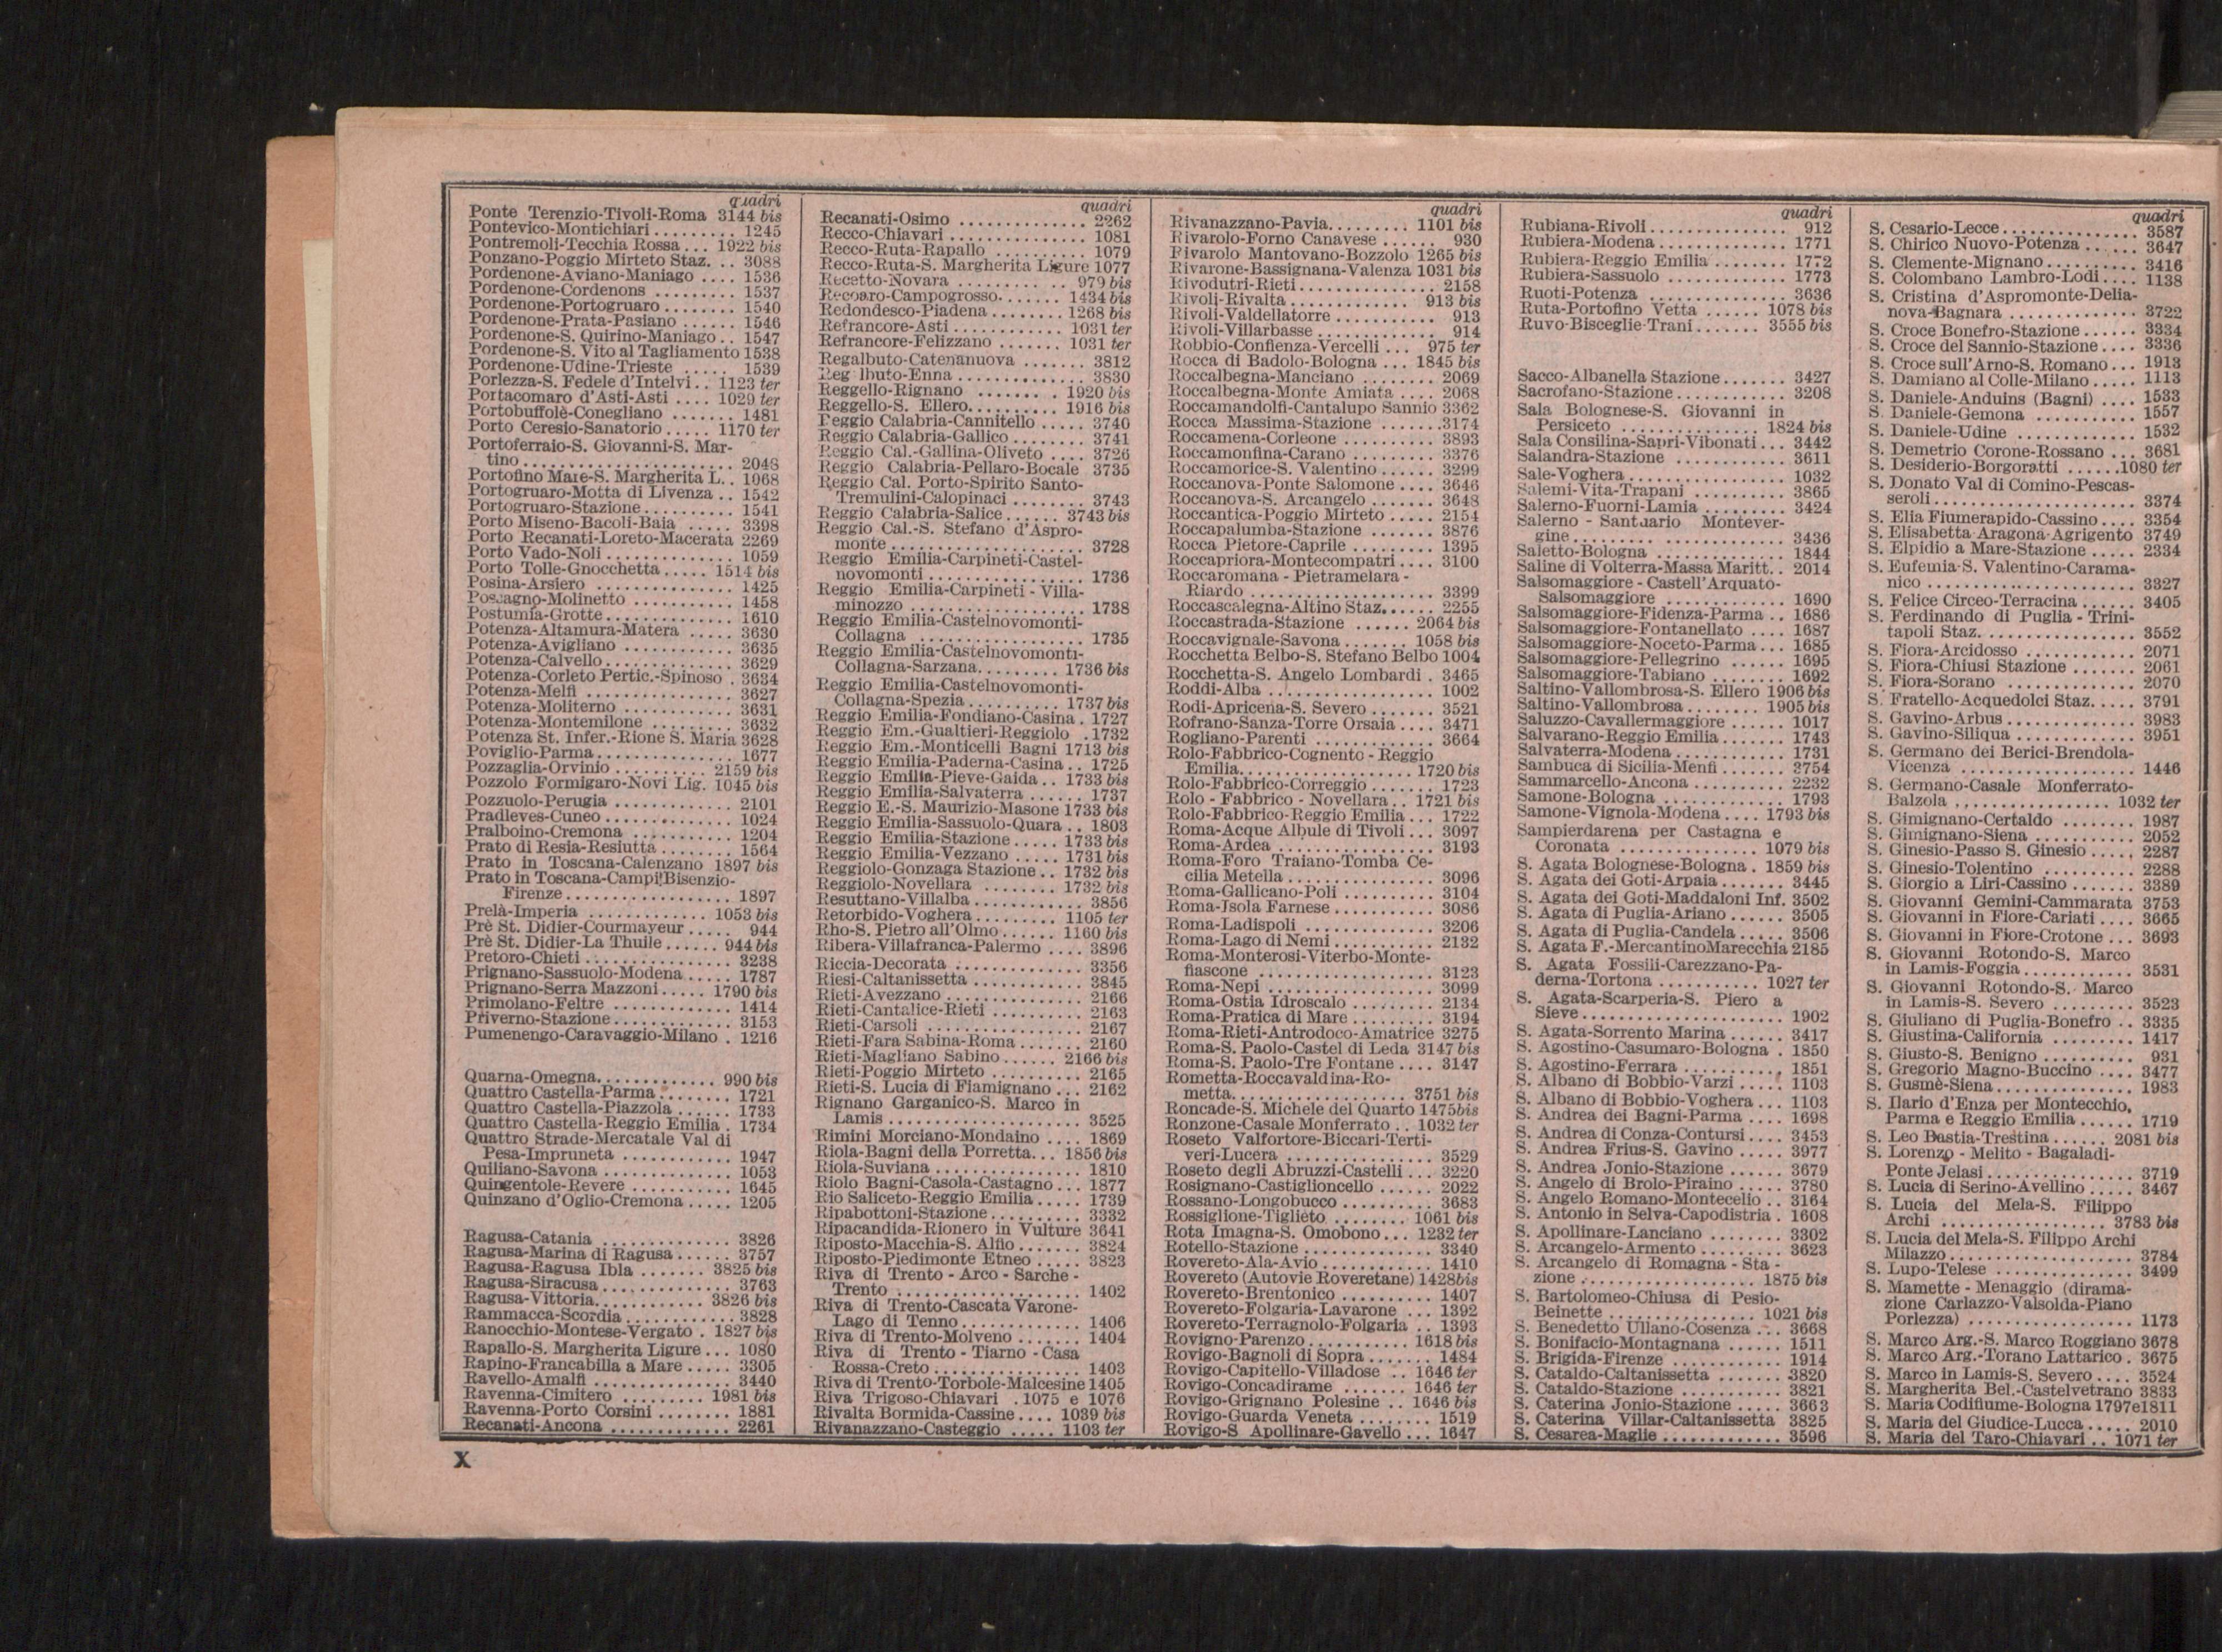 quadri
Ponte Terenzio-Tivoli-Roma 3144 bis
Pontevico-Montichiari ......... 1245
Pontremoli-Tecchia Rossa ... 1922 bis
Ponzano-Poggio Mirteto Staz. .. 3088
Pordenone-Aviano-Maniago .... 1536
Pordenone-Cordenons ......... 1537
Pordenone-Portogruaro ........ 1540
Pordenone-Prata-Pasiano ...... 1546
Pordenone-S. Quirino-Maniago .. 1547
Pordenone-S. Vito al Tagliamento 1538
Pordenone-Udine-Trieste ..... 1539
Porlezza-S. Fedele d'Intelvi .. 1123 ter
Portacomaro d'Asti-Asti .... 1029 ter
Portobuffolè-Conegliano ....... 1481
Porto Ceresio-Sanatorio ..... 1170 ter
Portoferraio-S. Giovanni-S. Mar-
tino ........................ 2048
Portofino Mare-S. Margherita L. . 1068
Portogruaro-Motta di Livenza .. 1542
Portogruaro-Stazione .......... 1541
Porto Miseno-Bacoli-Baia ..... 3398
Porto Recanati-Loreto-Macerata 2269
Porto Vado-Noli ............... 1059
Porto Tolle-Gnocchetta ..... 1514 bis
Posina-Arsiero ............... 1425
Poscagno-Molinetto ........... 1458
Postumia-Grotte .............. 1610
Potenza-Altamura-Matera ..... 3630
Potenza-Avigliano ............ 3635
Potenza-Calvello .............. 3629
Potenza-Corleto Pertic.-Spinoso . 3634
Potenza-Melfi ................ 3627
Potenza-Moliterno ............ 3631
Potenza-Montemilone ........ 3632
Potenza St. Infer.-Rione S. Maria 3628
Poviglio-Parma ................ 1677
Pozzaglia-Orvinio .......... 2159 bis
Pozzolo Formigaro-Novi Lig. 1045 bis
Pozzuolo-Perugia ............. 2101
Pradleves-Cuneo .............. 1024
Pralboino-Cremona ........... 1204
Prato di Resia-Resiutta ........ 1564
Prato in Toscana-Calenzano 1897 bis
Prato in Toscana-Campi Bisenzio-
Firenze .................. 1897
Prelà-Imperia ............. 1053 bis
Prè St. Didier-Courmayeur ..... 944
Prè St. Didier-La Thuile ...... 944 bis
Pretoro-Chieti ................ 3238
Prignano-Sassuolo-Modena ..... 1787
Prignano-Serra Mazzoni ..... 1790 bis
Primolano-Feltre ............. 1414
Priverno-Stazione ............. 3153
Pumenengo-Caravaggio-Milano . 1216
Quarna-Omegna ............. 990 bis
Quattro Castella-Parma ........ 1721
Quattro Castella-Piazzola ...... 1733
Quattro Castella-Reggio Emilia . 1734
Quattro Strade-Mercatale Val di
Pesa-Impruneta ............ 1947
Quiliano-Savona .............. 1053
Quingentole-Revere ........... 1645
Quinzano d'Oglio-Cremona ..... 1205
Ragusa-Catania .............. 3826
Ragusa-Marina di Ragusa ...... 3757
Ragusa-Ragusa Ibla ....... 3825 bis
Ragusa-Siracusa .............. 3763
Ragusa-Vittoria ............ 3826 bis
Rammacca-Scordia ............ 3828
Ranocchio-Montese-Vergato . 1827 bis
Rapallo-S. Margherita Ligure ... 1080
Rapino-Francabilla a Mare ..... 3305
Ravello-Amalfi ............... 3440
Ravenna-Cimitero ......... 1981 bis
Ravenna-Porto Corsini ........ 1881
Recanati-Ancona ............. 2261
X
quadri
Recanati-Osimo .............. 2262
Recco-Chiavari ............... 1081
Recco-Ruta-Rapallo .......... 1079
Recco-Ruta-S. Margherita Ligure 1077
Recetto-Novara ............ 979 bis
Recoaro-Campogrosso ....... 1434 bis
Redondesco-Piadena ........ 1268 bis
Refrancore-Asti ............ 1031 ter
Refrancore-Felizzano ....... 1031 ter
Regalbuto-Catenanuova ....... 3812
Reg lbuto-Enna .............. 3830
Reggello-Rignano ........ 1920 bis
Reggello-S. Ellero .......... 1916 bis
Reggio Calabria-Cannitello ..... 3740
Reggio Calabria-Gallico ........ 3741
Reggio Cal.-Gallina-Oliveto .... 3726
Reggio Calabria-Pellaro-Bocale 3735
Reggio Cal. Porto-Spirito Santo-
Tremulini-Calopinaci ........ 3743
Reggio Calabria-Salice ...... 3743 bis
Reggio Cal.-S. Stefano d'Aspro-
monte ..................... 3728
Reggio Emilia-Carpineti-Castel-
novomonti ................. 1736
Reggio Emilia-Carpineti - Villa-
minozzo ................... 1738
Reggio Emilia-Castelnovomonti-
Collagna .................. 1735
Reggio Emilia-Castelnovomonti-
Collagna-Sarzana ......... 1736 bis
Reggio Emilia-Castelnovomonti-
Collagna-Spezia .......... 1737 bis
Reggio Emilia-Fondiano-Casina . 1727
Reggio Em.-Gualtieri-Reggiolo . 1732
Reggio Em.-Monticelli Bagni 1713 bis
Reggio Emilia-Paderna-Casina .. 1725
Reggio Emilia-Pieve-Gaida .. 1733 bis
Reggio Emilia-Salvaterra ...... 1737
Reggio E.-S. Maurizio-Masone 1733 bis
Reggio Emilia-Sassuolo-Quara .. 1803
Reggio Emilia-Stazione ..... 1733 bis
Reggio Emilia-Vezzano ..... 1731 bis
Reggiolo-Gonzaga Stazione .. 1732 bis
Reggiolo-Novellara ........ 1732 bis
Resuttano-Villalba ............ 3856
Retorbido-Voghera ......... 1105 ter
Rho-S. Pietro all'Olmo ...... 1160 bis
Ribera-Villafranca-Palermo .... 3896
Riccia-Decorata .............. 3356
Riesi-Caltanissetta ............ 3845
Rieti-Avezzano ............... 2166
Rieti-Cantalice-Rieti .......... 2163
Rieti-Carsoli ................. 2167
Rieti-Fara Sabina-Roma ....... 2160
Rieti-Magliano Sabino ...... 2166 bis
Rieti-Poggio Mirteto .......... 2165
Rieti-S. Lucia di Fiamignano ... 2162
Rignano Garganico-S. Marco in
Lamis ..................... 3525
Rimini Morciano-Mondaino .... 1869
Riola-Bagni della Porretta ... 1856 bis
Riola-Suviana ................ 1810
Riolo Bagni-Casola-Castagno ... 1877
Rio Saliceto-Reggio Emilia ..... 1739
Ripabottoni-Stazione .......... 3332
Ripacandida-Rionero in Vulture 3641
Riposto-Macchia-S. Alfio ....... 3824
Riposto-Piedimonte Etneo ..... 3823
Riva di Trento - Arco - Sarche -
Trento .................... 1402
Riva di Trento-Cascata Varone-
Lago di Tenno ............. 1406
Riva di Trento-Molveno ....... 1404
Riva di Trento - Tiarno - Casa
Rossa-Creto ................ 1403
Riva di Trento-Torbole-Malcesine 1405
Riva Trigoso-Chiavari . 1075 e 1076
Rivalta Bormida-Cassine .... 1039 bis
Rivanazzano-Casteggio ..... 1103 ter
quadri
Rivanazzano-Pavia ......... 1101 bis
Rivarolo-Forno Canavese ...... 930
Rivarolo Mantovano-Bozzolo 1265 bis
Rivarone-Bassignana-Valenza 1031 bis
Rivodutri-Rieti ............... 2158
Rivoli-Rivalta .............. 913 bis
Rivoli-Valdellatorre ........... 913
Rivoli-Villarbasse ............. 914
Robbio-Confienza-Vercelli ... 975 ter
Rocca di Badolo-Bologna ... 1845 bis
Roccalbegna-Manciano ........ 2069
Roccalbegna-Monte Amiata .... 2068
Roccamandolfi-Cantalupo Sannio 3362
Rocca Massima-Stazione ....... 3174
Roccamena-Corleone .......... 3893
Roccamonfina-Carano ......... 3376
Roccamorice-S. Valentino ...... 3299
Roccanova-Ponte Salomone .... 3646
Roccanova-S. Arcangelo ....... 3648
Roccantica-Poggio Mirteto ..... 2154
Roccapalumba-Stazione ....... 3876
Rocca Pietore-Caprile ......... 1395
Roccapriora-Montecompatri .... 3100
Roccaromana - Pietramelara -
Riardo .................... 3399
Roccascalegna-Altino Staz. ..... 2255
Roccastrada-Stazione ...... 2064 bis
Roccavignale-Savona ....... 1058 bis
Rocchetta Belbo-S. Stefano Belbo 1004
Rocchetta-S. Angelo Lombardi . 3465
Roddi-Alba .................. 1002
Rodi-Apricena-S. Severo ....... 3521
Rofrano-Sanza-Torre Orsaia .... 3471
Rogliano-Parenti ............. 3664
Rolo-Fabbrico-Cognento - Reggio
Emilia ................... 1720 bis
Rolo-Fabbrico-Correggio ....... 1723
Rolo - Fabbrico - Novellara .. 1721 bis
Rolo-Fabbrico-Reggio Emilia ... 1722
Roma-Acque Albule di Tivoli ... 3097
Roma-Ardea ................. 3193
Roma-Foro Traiano-Tomba Ce-
cilia Metella ................ 3096
Roma-Gallicano-Poli .......... 3104
Roma-Isola Farnese ........... 3086
Roma-Ladispoli .............. 3206
Roma-Lago di Nemi ........... 2132
Roma-Monterosi-Viterbo-Monte-
fiascone ................... 3123
Roma-Nepi .................. 3099
Roma-Ostia Idroscalo ......... 2134
Roma-Pratica di Mare ......... 3194
Roma-Rieti-Antrodoco-Amatrice 3275
Roma-S. Paolo-Castel di Leda 3147 bis
Roma-S. Paolo-Tre Fontane .... 3147
Rometta-Roccavaldina-Ro-
metta .................... 3751 bis
Roncade-S. Michele del Quarto 1475 bis
Ronzone-Casale Monferrato .. 1032 ter
Roseto Valfortore-Biccari-Terti-
veri-Lucera ................ 3529
Roseto degli Abruzzi-Castelli ... 3220
Rosignano-Castiglioncello ...... 2022
Rossano-Longobucco .......... 3683
Rossiglione-Tiglieto ........ 1061 bis
Rota Imagna-S. Omobono ... 1232 ter
Rotello-Stazione .............. 3340
Rovereto-Ala-Avio ............ 1410
Rovereto (Autovie Roveretane) 1428 bis
Rovereto-Brentonico .......... 1407
Rovereto-Folgaria-Lavarone ... 1392
Rovereto-Terragnolo-Folgaria .. 1393
Rovigno-Parenzo ............ 1618 bis
Rovigo-Bagnoli di Sopra ....... 1484
Rovigo-Capitello-Villadose .. 1646 ter
Rovigo-Concadirame ....... 1646 ter
Rovigo-Grignano Polesine .. 1646 bis
Rovigo-Guarda Veneta ........ 1519
Rovigo-S Apollinare-Gavello ... 1647
quadri
Rubiana-Rivoli ............... 912
Rubiera-Modena .............. 1771
Rubiera-Reggio Emilia ........ 1772
Rubiera-Sassuolo ............. 1773
Ruoti-Potenza ............... 3636
Ruta-Portofino Vetta ...... 1078 bis
Ruvo-Bisceglie-Trani ....... 3555 bis
Sacco-Albanella Stazione ....... 3427
Sacrofano-Stazione ............ 3208
Sala Bolognese-S. Giovanni in
Persiceto ............... 1824 bis
Sala Consilina-Sapri-Vibonati ... 3442
Salandra-Stazione ............ 3611
Sale-Voghera ................. 1032
Salemi-Vita-Trapani .......... 3865
Salerno-Fuorni-Lamia ......... 3424
Salerno - Santuario Montever-
gine ....................... 3436
Saletto-Bologna .............. 1844
Saline di Volterra-Massa Maritt. . 2014
Salsomaggiore - Castell'Arquato-
Salsomaggiore ............. 1690
Salsomaggiore-Fidenza-Parma .. 1686
Salsomaggiore-Fontanellato .... 1687
Salsomaggiore-Noceto-Parma ... 1685
Salsomaggiore-Pellegrino ...... 1695
Salsomaggiore-Tabiano ........ 1692
Saltino-Vallombrosa-S. Ellero 1906 bis
Saltino-Vallombrosa ........ 1905 bis
Saluzzo-Cavallermaggiore ...... 1017
Salvarano-Reggio Emilia ....... 1743
Salvaterra-Modena ............ 1731
Sambuca di Sicilia-Menfi ....... 3754
Sammarcello-Ancona .......... 2232
Samone-Bologna ............. 1793
Samone-Vignola-Modena .... 1793 bis
Sampierdarena per Castagna e
Coronata ............... 1079 bis
S. Agata Bolognese-Bologna . 1859 bis
S. Agata dei Goti-Arpaia ....... 3445
S. Agata dei Goti-Maddaloni Inf. 3502
S. Agata di Puglia-Ariano ...... 3505
S. Agata di Puglia-Candela ..... 3506
S. Agata F.-MercantinoMarecchia 2185
S. Agata Fossili-Carezzano-Pa-
derna-Tortona ........... 1027 ter
S. Agata-Scarperia-S. Piero a
Sieve ...................... 1902
S. Agata-Sorrento Marina ...... 3417
S. Agostino-Casumaro-Bologna . 1850
S. Agostino-Ferrara ........... 1851
S. Albano di Bobbio-Varzi ..... 1103
S. Albano di Bobbio-Voghera ... 1103
S. Andrea dei Bagni-Parma .... 1698
S. Andrea di Conza-Contursi .... 3453
S. Andrea Frius-S. Gavino ..... 3977
S. Andrea Jonio-Stazione ...... 3679
S. Angelo di Brolo-Piraino ..... 3780
S. Angelo Romano-Montecelio .. 3164
S. Antonio in Selva-Capodistria . 1608
S. Apollinare-Lanciano ........ 3302
S. Arcangelo-Armento ......... 3623
S. Arcangelo di Romagna - Sta -
zione ................... 1875 bis
S. Bartolomeo-Chiusa di Pesio-
Beinette ................ 1021 bis
S. Benedetto Ullano-Cosenza ... 3668
S. Bonifacio-Montagnana ...... 1511
S. Brigida-Firenze ............ 1914
S. Cataldo-Caltanissetta ....... 3820
S. Cataldo-Stazione ........... 3821
S. Caterina Jonio-Stazione ..... 3663
S. Caterina Villar-Caltanissetta 3825
S. Cesarea-Maglie ............. 3596
quadri
S. Cesario-Lecce ............... 3587
S. Chirico Nuovo-Potenza ...... 3647
S. Clemente-Mignano .......... 3416
S. Colombano Lambro-Lodi .... 1138
S. Cristina d'Aspromonte-Delia-
nova-Bagnara .............. 3722
S. Croce Bonefro-Stazione ...... 3334
S. Croce del Sannio-Stazione .... 3336
S. Croce sull'Arno-S. Romano ... 1913
S. Damiano al Colle-Milano ..... 1113
S. Daniele-Anduins (Bagni) .... 1533
S. Daniele-Gemona ........... 1557
S. Daniele-Udine ............. 1532
S. Demetrio Corone-Rossano ... 3681
S. Desiderio-Borgoratti ...... 1080 ter
S. Donato Val di Comino-Pescas-
seroli ...................... 3374
S. Elia Fiumerapido-Cassino .... 3354
S. Elisabetta Aragona-Agrigento 3749
S. Elpidio a Mare-Stazione ..... 2334
S. Eufemia-S. Valentino-Carama-
nico ....................... 3327
S. Felice Circeo-Terracina ...... 3405
S. Ferdinando di Puglia - Trini-
tapoli Staz. ................ 3552
S. Fiora-Arcidosso ............ 2071
S. Fiora-Chiusi Stazione ....... 2061
S. Fiora-Sorano .............. 2070
S. Fratello-Acquedolci Staz. .... 3791
S. Gavino-Arbus .............. 3983
S. Gavino-Siliqua ............. 3951
S. Germano dei Berici-Brendola-
Vicenza ................... 1446
S. Germano-Casale Monferrato-
Balzola ................. 1032 ter
S. Gimignano-Certaldo ........ 1987
S. Gimignano-Siena ........... 2052
S. Ginesio-Passo S. Ginesio ..... 2287
S. Ginesio-Tolentino .......... 2288
S. Giorgio a Liri-Cassino ....... 3389
S. Giovanni Gemini-Cammarata 3753
S. Giovanni in Fiore-Cariati .... 3665
S. Giovanni in Fiore-Crotone ... 3693
S. Giovanni Rotondo-S. Marco
in Lamis-Foggia ............ 3531
S. Giovanni Rotondo-S. Marco
in Lamis-S. Severo ......... 3523
S. Giuliano di Puglia-Bonefro .. 3335
S. Giustina-California ......... 1417
S. Giusto-S. Benigno .......... 931
S. Gregorio Magno-Buccino .... 3477
S. Gusmè-Siena ............... 1983
S. Ilario d'Enza per Montecchio,
Parma e Reggio Emilia ...... 1719
S. Leo Bastia-Trestina ...... 2081 bis
S. Lorenzo - Melito - Bagaladi-
Ponte Jelasi ................ 3719
S. Lucia di Serino-Avellino ..... 3467
S. Lucia del Mela-S. Filippo
Archi .................. 3783 bis
S. Lucia del Mela-S. Filippo Archi
Milazzo .................... 3784
S. Lupo-Telese ............... 3499
S. Mamette - Menaggio (dirama-
zione Carlazzo-Valsolda-Piano
Porlezza) ................... 1173
S. Marco Arg.-S. Marco Roggiano 3678
S. Marco Arg.-Torano Lattarico . 3675
S. Marco in Lamis-S. Severo .... 3524
S. Margherita Bel.-Castelvetrano 3833
S. Maria Codifiume-Bologna 1797e1811
S. Maria del Giudice-Lucca ..... 2010
S. Maria del Taro-Chiavari .. 1071 ter